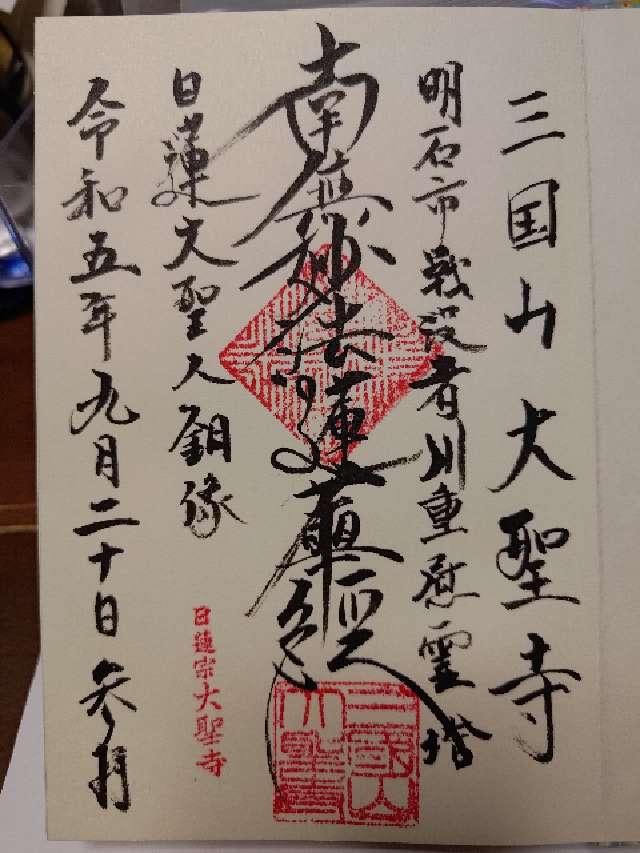 三国山大聖寺
明石市戦没者川重慰霊塔
南無妙法蓮華経
日蓮大聖人銅像
令和五年九月二十日 参拝
日蓮宗大聖寺
三国山
大聖寺